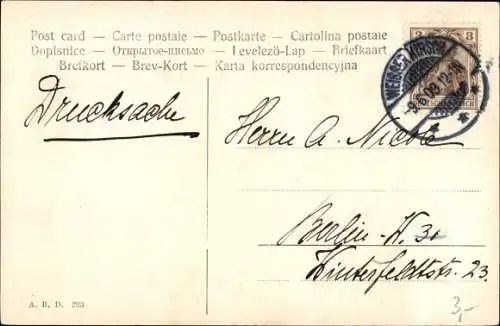 Post card — Carte postale — Postkarte — Cartolina postale
Dopisnice — Открытое-письмо — Levelezö-Lap — Briefkaart
Brefkort — Brev-Kort — Karta korrespondencyjna
3 3
Drucksache
Herrn A. Nicole
Berlin-W. 30
Winterfeldtstr. 23.
A. B. D. 225
3,-